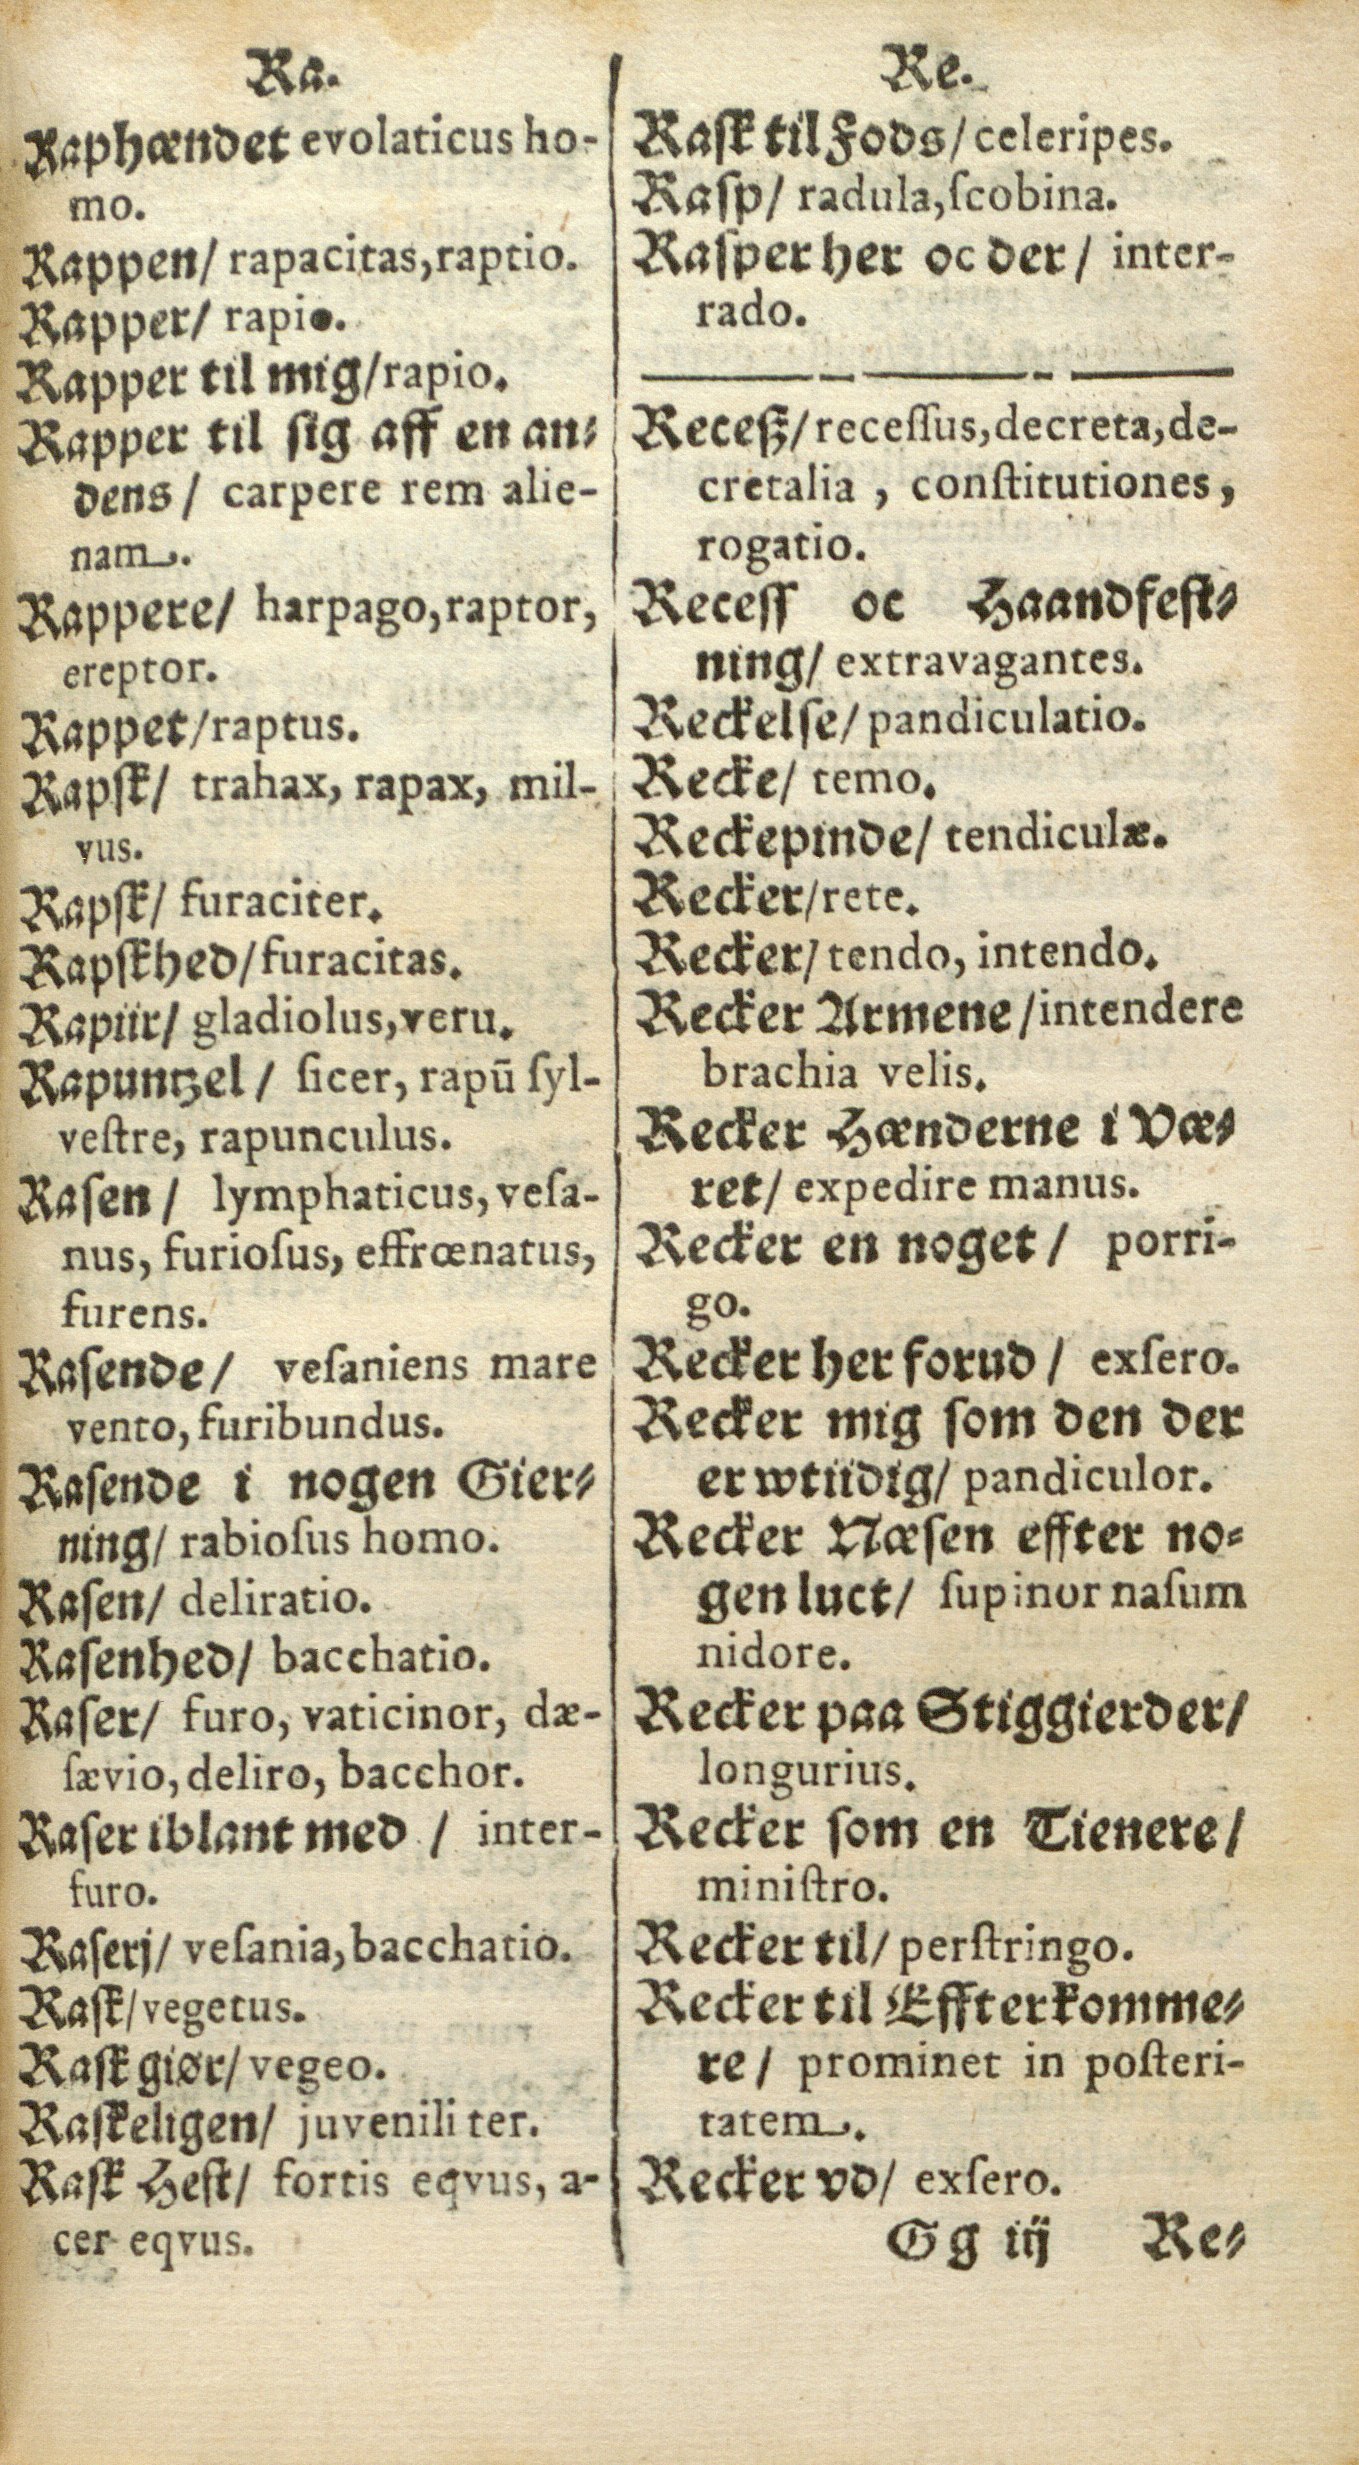 Ra.
Raphændet evolaticus ho-
mo.
Rappen/ rapacitas, raptio.
Rapper/ rapio.
Rapper til mig/ rapio.
Rapper til ſig aff en an-
dens/ carpere rem alie-
nam.
Rappere/ harpago, raptor,
ereptor.
Rappet/ raptus.
Rapſk/ trahax, rapax, mil-
vus.
Rapſk/ furaciter.
Rapſkhed/ furacitas.
Rapiir/ gladiolus, veru.
Rapuntzel/ ſicer, rapū ſyl-
veſtre, rapunculus.
Raſen/ lymphaticus, veſa-
nus, furioſus, effrœnatus,
furens.
Raſende/ veſaniens mare
vento, furibundus.
Raſende i nogen Gier-
ning/ rabioſus homo.
Raſen/ deliratio.
Raſenhed/ bacchatio.
Raſer/ furo, vaticinor, dæ-
ſævio, deliro, bacchor.
Raſer iblant med/ inter-
furo.
Raſerj/ veſania, bacchatio.
Raſk/ vegetus.
Raſk giør/ vegeo.
Raſkeligen/ juveniliter.
Raſk Heſt/ fortis eqvus, a-
cer eqvus.
Re.
Raſk til Fods/ celeripes.
Raſp/ radula, ſcobina.
Raſper her oc der/ inter-
rado.
Receſz/ receſſus, decreta, de-
cretalia, conſtitutiones,
rogatio.
Receſſ oc Haandfeſt-
ning/ extravagantes.
Reckelſe/ pandiculatio.
Recke/ temo.
Reckepinde/ tendiculæ.
Recker/ rete.
Recker/ tendo, intendo.
Recker Armene/ intendere
brachia velis.
Recker Hænderne i Væ-
ret/ expedire manus.
Recker en noget/ porri-
go.
Recker her forud/ exſero.
Recker mig ſom den der
er wtiidig/ pandiculor.
Recker Næſen effter no-
gen luct/ ſupinor naſum
nidore.
Recker paa Stiggierder/
longurius.
Recker ſom en Tienere/
miniſtro.
Recker til/ perſtringo.
Recker til Effterkomme-
re/ prominet in poſteri-
tatem.
Recker vd/ exſero.
Gg iij Re-